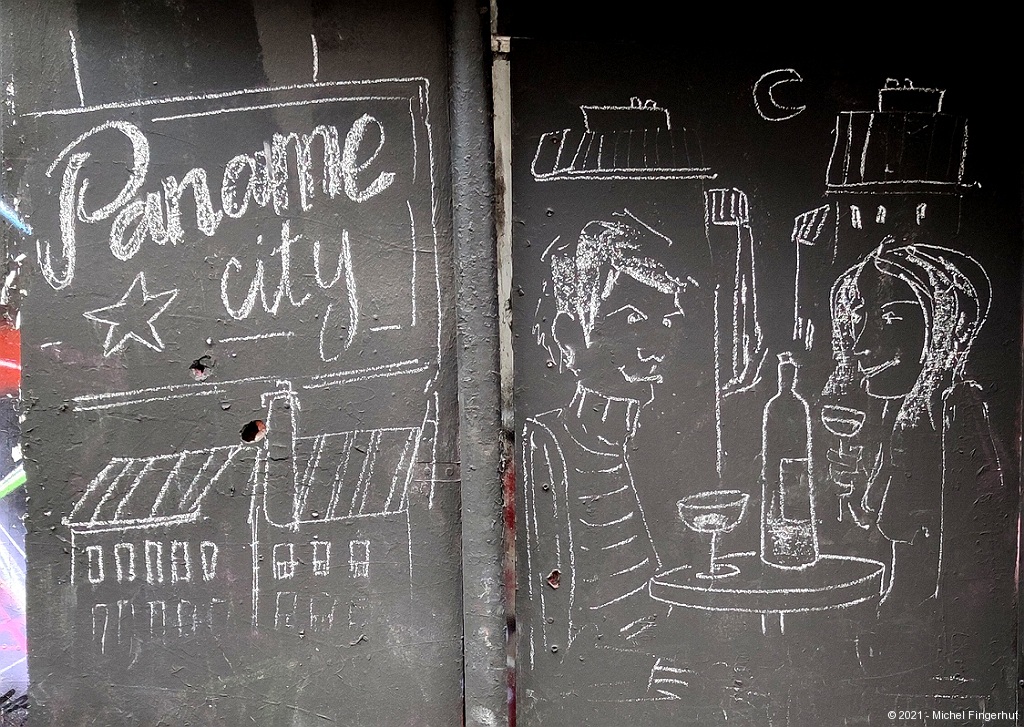 Paname
city
© 2021 - Michel Fingerhut